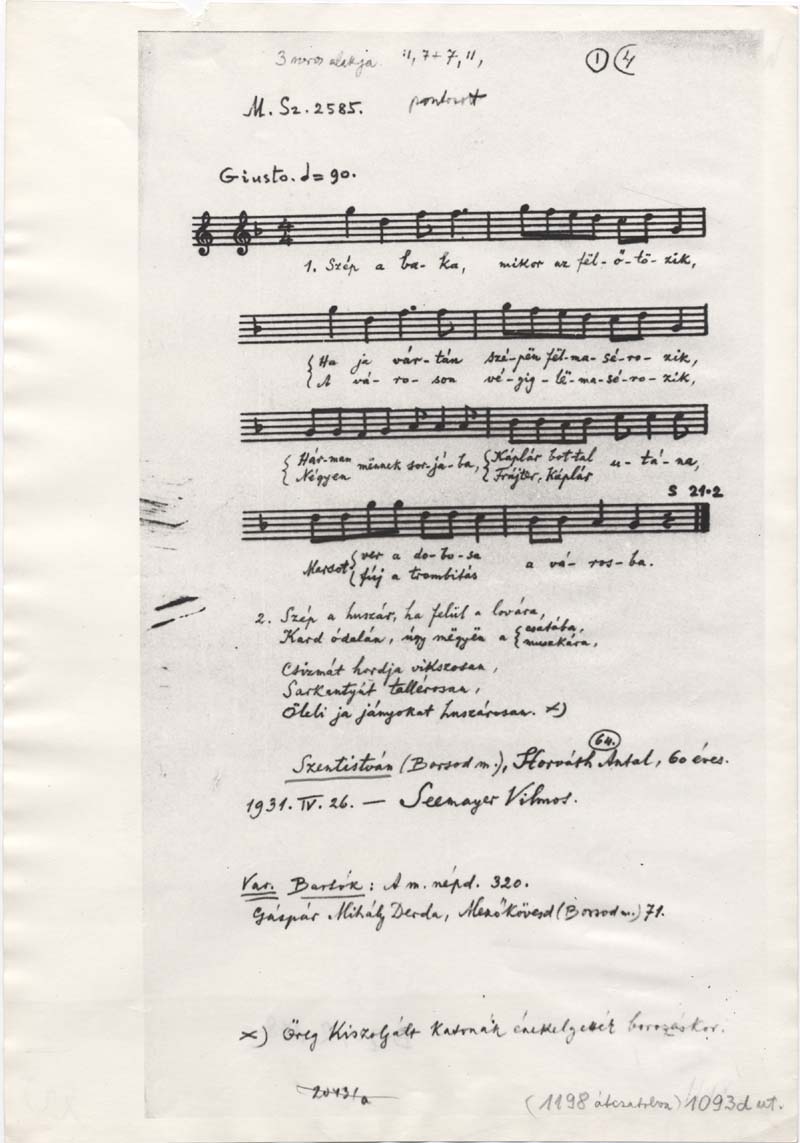 3 soros alakja. 11, 7+7, 11,
1 4
M. Sz. 2585.
pontozott
Giusto. = 90.
1. Szép a ba-ka, mikor az fël-ő-tö-zik,
Ha ja vár-tán szé-pën fël-ma-sé-ro-zik,
A vá-ro-son vé-gig-lë-ma-sé-ro-zik,
Hár-man mënnek sor-já-ba, Káplár bot-tal u-tá-na,
Négyen Frájter, Káplár
S 21.2
Marsot ver a do-bo-sa a vá-ros-ba.
fúj a trombitás
2. Szép a huszár, ha felül a lovára,
Kard ódalán, úgy mëgyën a csatába,
muszkára,
Csizmát hordja vikszosan,
Sarkantyúját tallérosan,
Öleli ja jányokat huszárosan. x)
64.
Szentistván (Borsod m.), Horváth Antal, 60 éves.
1931. IV. 26. — Seemayer Vilmos.
Var. Bartók: A m. népd. 320.
Gáspár Mihály Derda, Mezőkövesd (Borsod m.) 71.
x) Öreg kiszolgált katonák énekelgették borozáskor.
(1198 átcsatolva) 1093d ut.